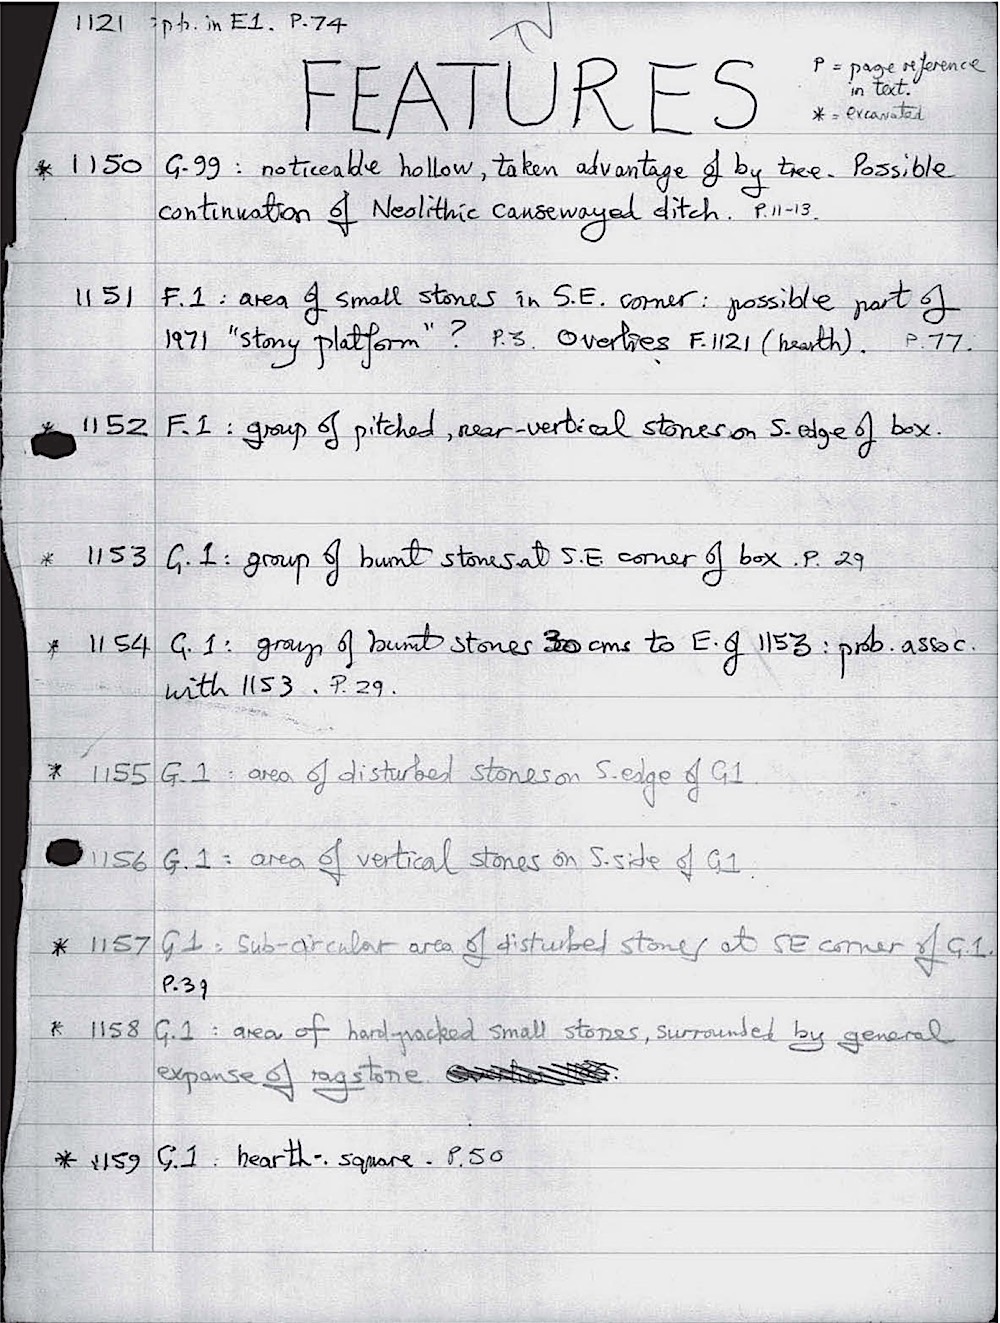 1121 : ph. in E1. P.74
FEATURES
P = page reference
in text.
* = excavated
* 1150 G.99 : noticeable hollow, taken advantage of by tree. Possible
continuation of Neolithic causewayed ditch. P.11-13.
1151 F.1 : area of small stones in S.E. corner: possible part of
1971 "stony platform" ? P.3. Overlies F.1121 (hearth). P.77.
* 1152 F.1 : group of pitched, near-vertical stones on S. edge of box.
* 1153 G.1 : group of burnt stones at S.E. corner of box. P. 29
* 1154 G.1 : group of burnt stones 30 cms to E. of 1153 : prob. assoc.
with 1153. P.29.
* 1155 G.1 : area of disturbed stones on S. edge of G1
1156 G.1 : area of vertical stones on S. side of G1.
* 1157 G1 : Sub-circular area of disturbed stones at SE corner of G.1.
P.39
* 1158 G.1 : area of hard-packed small stones, surrounded by general
expanse of ragstone
* 1159 G.1 : hearth-. square. P.50